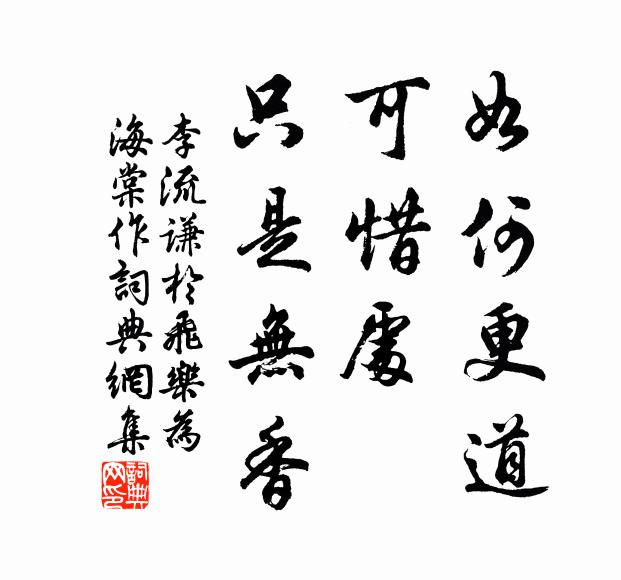 如何更道
可惜處
只是無香
李流谦於飛樂為
海棠作詞典網集
詞典網印